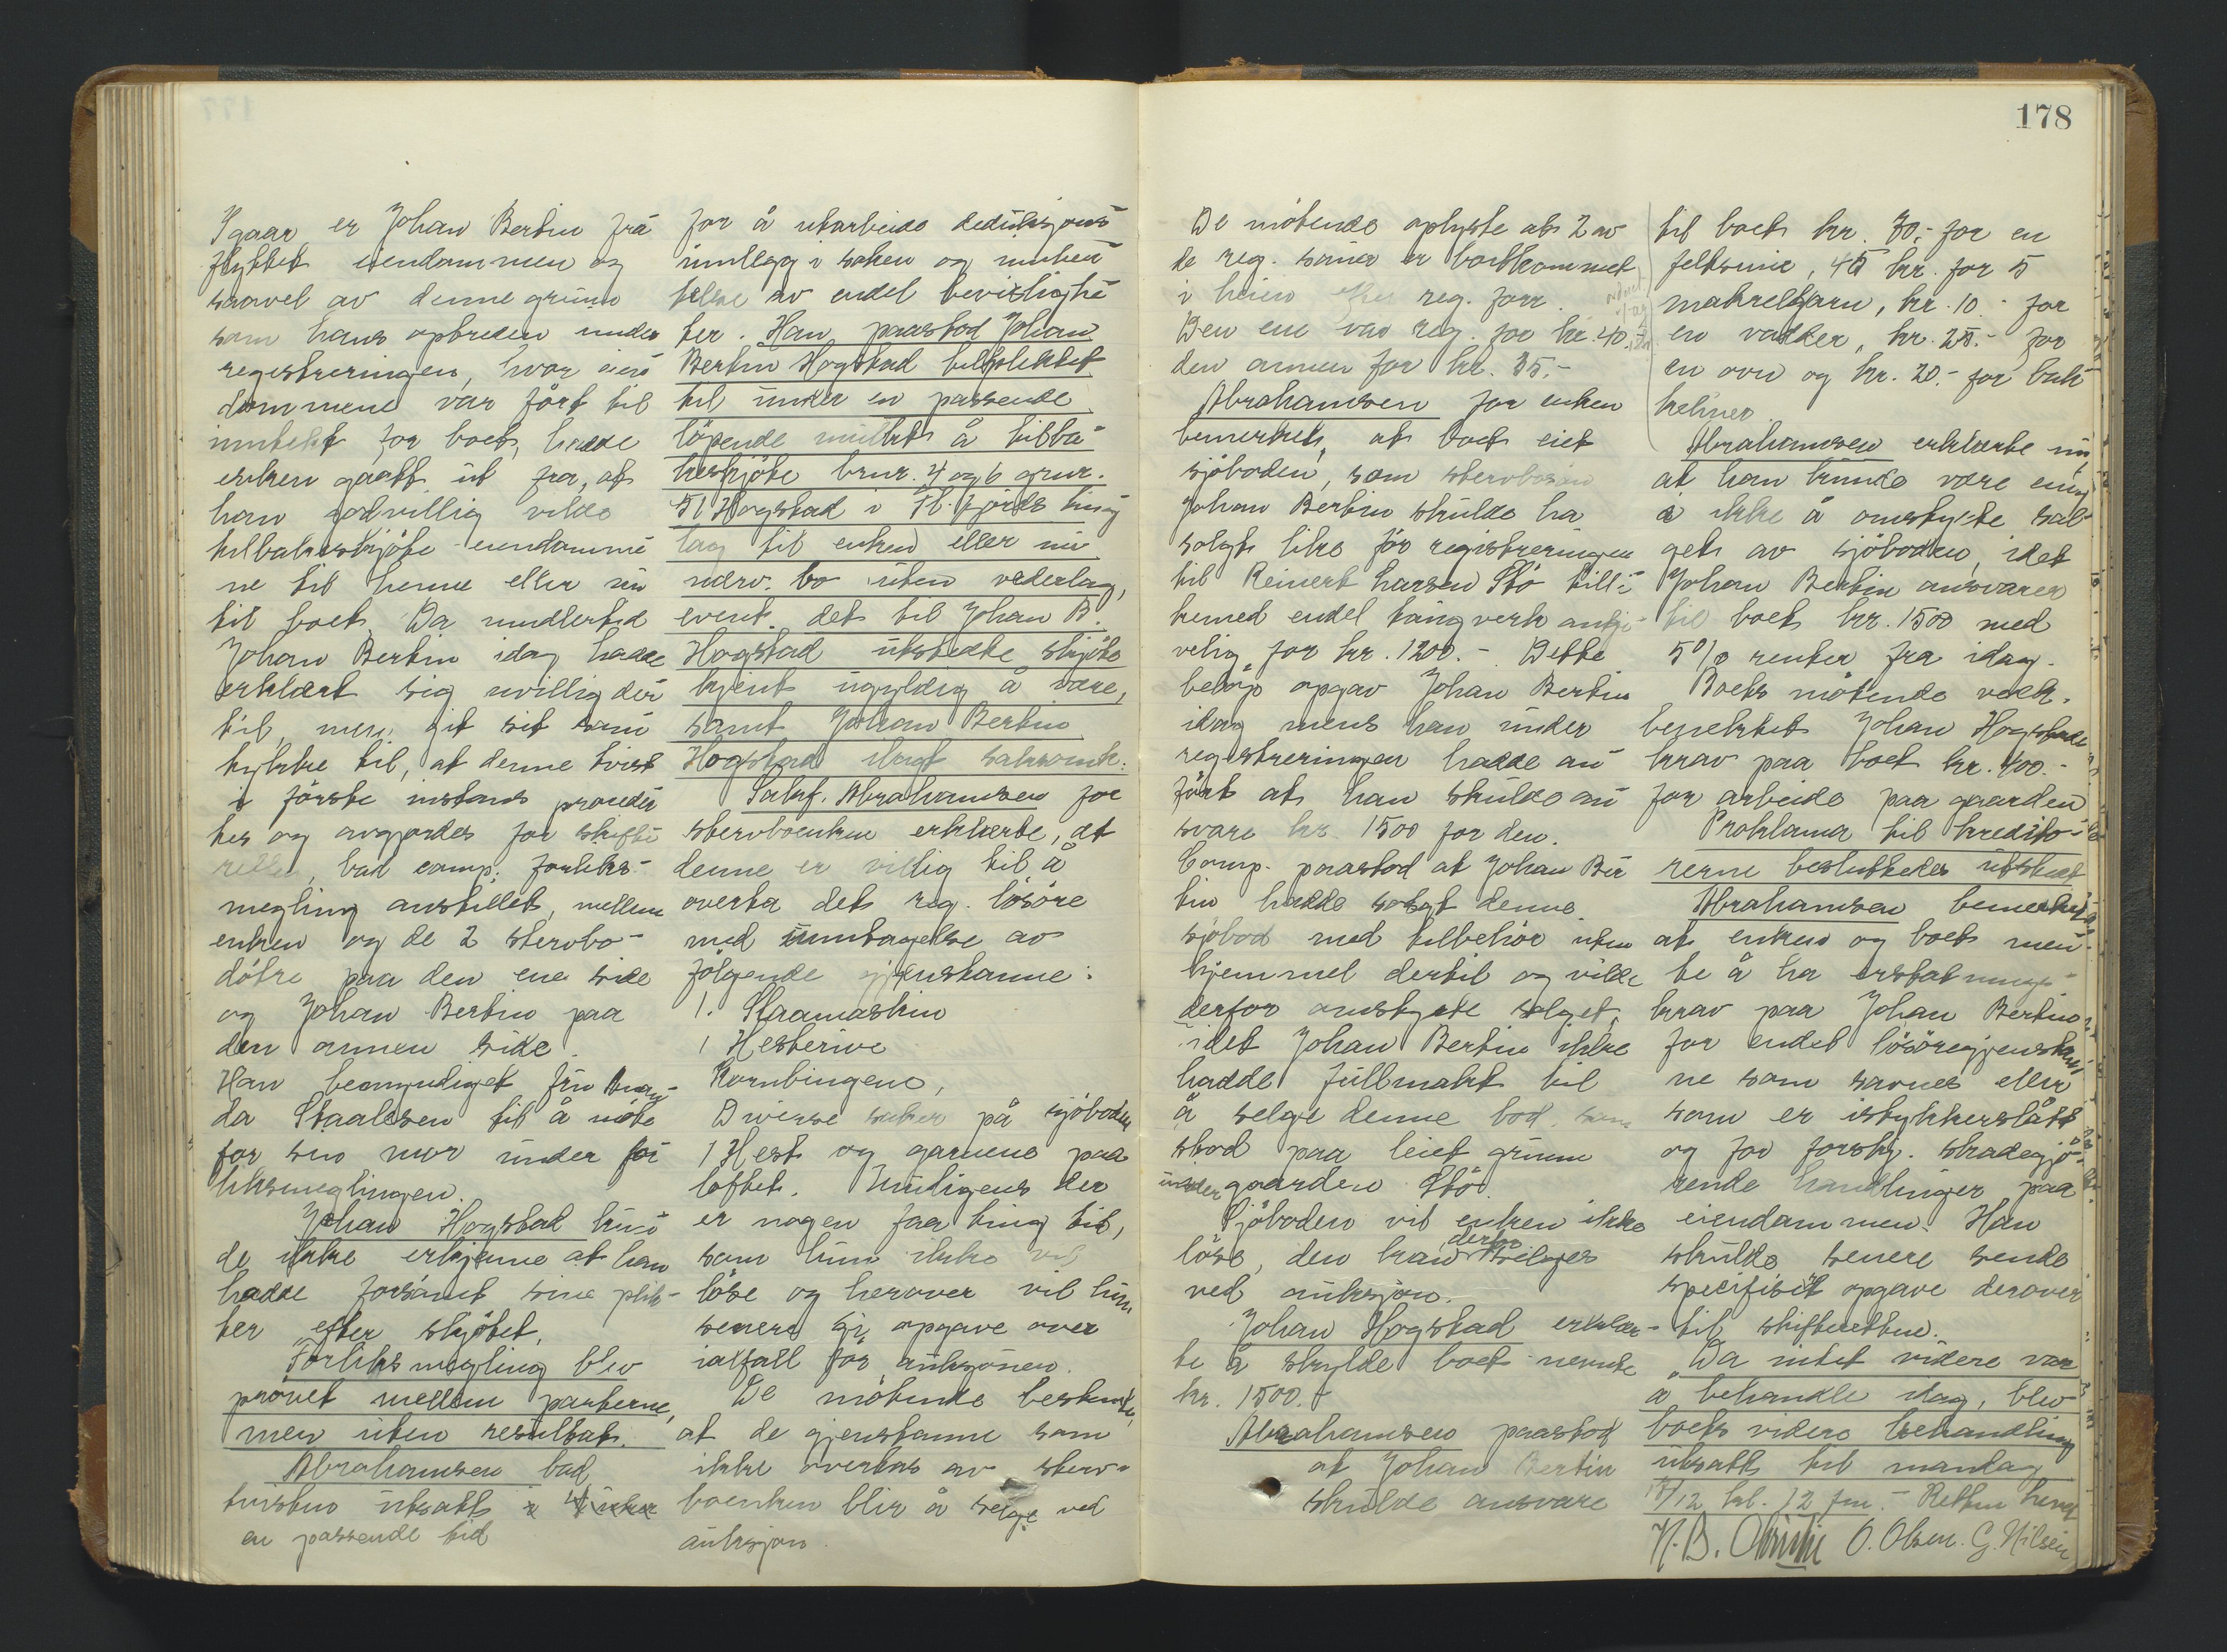 Igaar er Johan Bertin fra
flyttet eiendommen og
saavel av denne grunn
som hans optreden under
registreringen, hvor eien
dommene var ført til
inntekt for boet, hadde
enken gaatt ut fra, at
han godvillig vilde
tilbakeskjøte eiendomme
ne til henne eller nu
til boet. Da imidlertid
Johan Bertin idag hadde
erklært sig uvillig der
til, men git sit sam
tykke til, at denne tvist
i første instans proceder
tes og avgjordes for skifte
retten, bad comp. forliks-
megling anstillet, mellem
enken og de 2 stervbo-
døtre paa den ene side
og Johan Bertin paa
den annen side.
Han bemyndiget fru
da Staalesen til å møte
for sin mor under for
liksmeglingen.
Johan Hogstad kun
de ikke erkjenne at han
hadde forsømt sine plik-
ter efter skjøtet.
Forliksmegling blev
prøvet mellem parterne,
men uten resultat.
Abrahamsen bad
tvisten utsatt i 4 uker
en passende tid
for å utarbeide deduksjons
innlegg i saken og innhen
telse av endel bevislighe
ter. Han paastod Johan
Bertin Hogstad tilpliktet
til under en passende
løpende mulkt å tilba
keskjøte brnr. 4 og 6 gnr.
51 Hogstad i Fl. fjords ting
lag til enken eller nu
nærv. bo uten vederlag,
event. det til Johan B.
Hogstad utstedte skjøte
kjent ugyldig å være,
samt Johan Bertin
Hogstad ilagt saksomk.
Sakf. Abrahamsen for
stervboenken erklærte, at
denne er villig til å
overta det reg. løsøre
med unntagelse av
følgende gjenstanne:
1. Slaamaskin
1 Hesterive
Kornbingene,
Diverse saker på sjøboden
1 Hest og garnene paa
loftet. Muligens der
er nogen faa ting til,
som hun ikke vil
løse og herover vil hun
senere gi opgave over
ialfall før auksjonen.
De møtende bestemte,
at de gjenstanne som
ikke overtas av sterv-
boenken blir å selge ved
auksjon.
178
De møtende oplyste at 2 av
de reg. sauer er bortkommet
i heien reg. forr.
Den ene var reg. for kr. 40.-
den annen for kr. 35.-
Abrahamsen for enken
bemerket, at boet eiet
sjøboden, som stervbosøn
Johan Bertin skulde ha
solgt like før registreringen
til Reinert Larsen Stø tilli
kemed endel taugverk
velig for kr. 1200.- Dette
beløp opgav Johan Bertin
idag mens han under
registreringen hadde an
ført at han skulde an
svare kr. 1500 for den.
Comp. paastod at Johan Ber
tin hadde solgt denne
sjøbod med tilbehør uten
hjemmel dertil og vilde
derfor omstyte salget,
idet Johan Bertin ikke
hadde fullmakt til
å selge denne bod, som
stod paa leiet grunn
under gaarden Stø.
Sjøboden vil enken ikke
løse, den kan derfor selges
ved auksjon.
Johan Hogstad erklær-
te å skylde boet nevnte
kr. 1500.-
Abrahamsen paastod
at Johan Bertin
skulde ansvare
til boet kr. 30.- for en
feltsmie, 45 kr. for 5
makrelgarn, kr. 10.- for
en vadder, kr. 25.- for
en ovn og kr. 20.- for
keliner
Abrahamsen erklærte nu
at han kunde være enig
i ikke å omstyte sal-
get av sjøboden, idet
Johan Bertin ansvarer
til boet kr. 1500 med
5 % renter fra idag.
Boets møtende vedk.
benektet Johan Hogstads
krav paa boet kr. 400.-
for arbeide paa gaarden
Proklama til kredito-
rerne besluttedes utstedt
Abrahamsen bemerket
at enken og boet men
te å ha erstatnings-
krav paa Johan Bertin
for endel løsøregjenstan
ne som savnes eller
som er istykkerslått
og for forskj. skadegjø-
rende handlinger paa
eiendommen. Han
skulde senere sende
specifisert opgave derover
til skifteretten.
Da intet videre var
å behandle idag, blev
boets videre behandling
utsatt til mandag
15/12 kl. 12 fm. - Retten hevet
O. Olsen. G. Nilsen